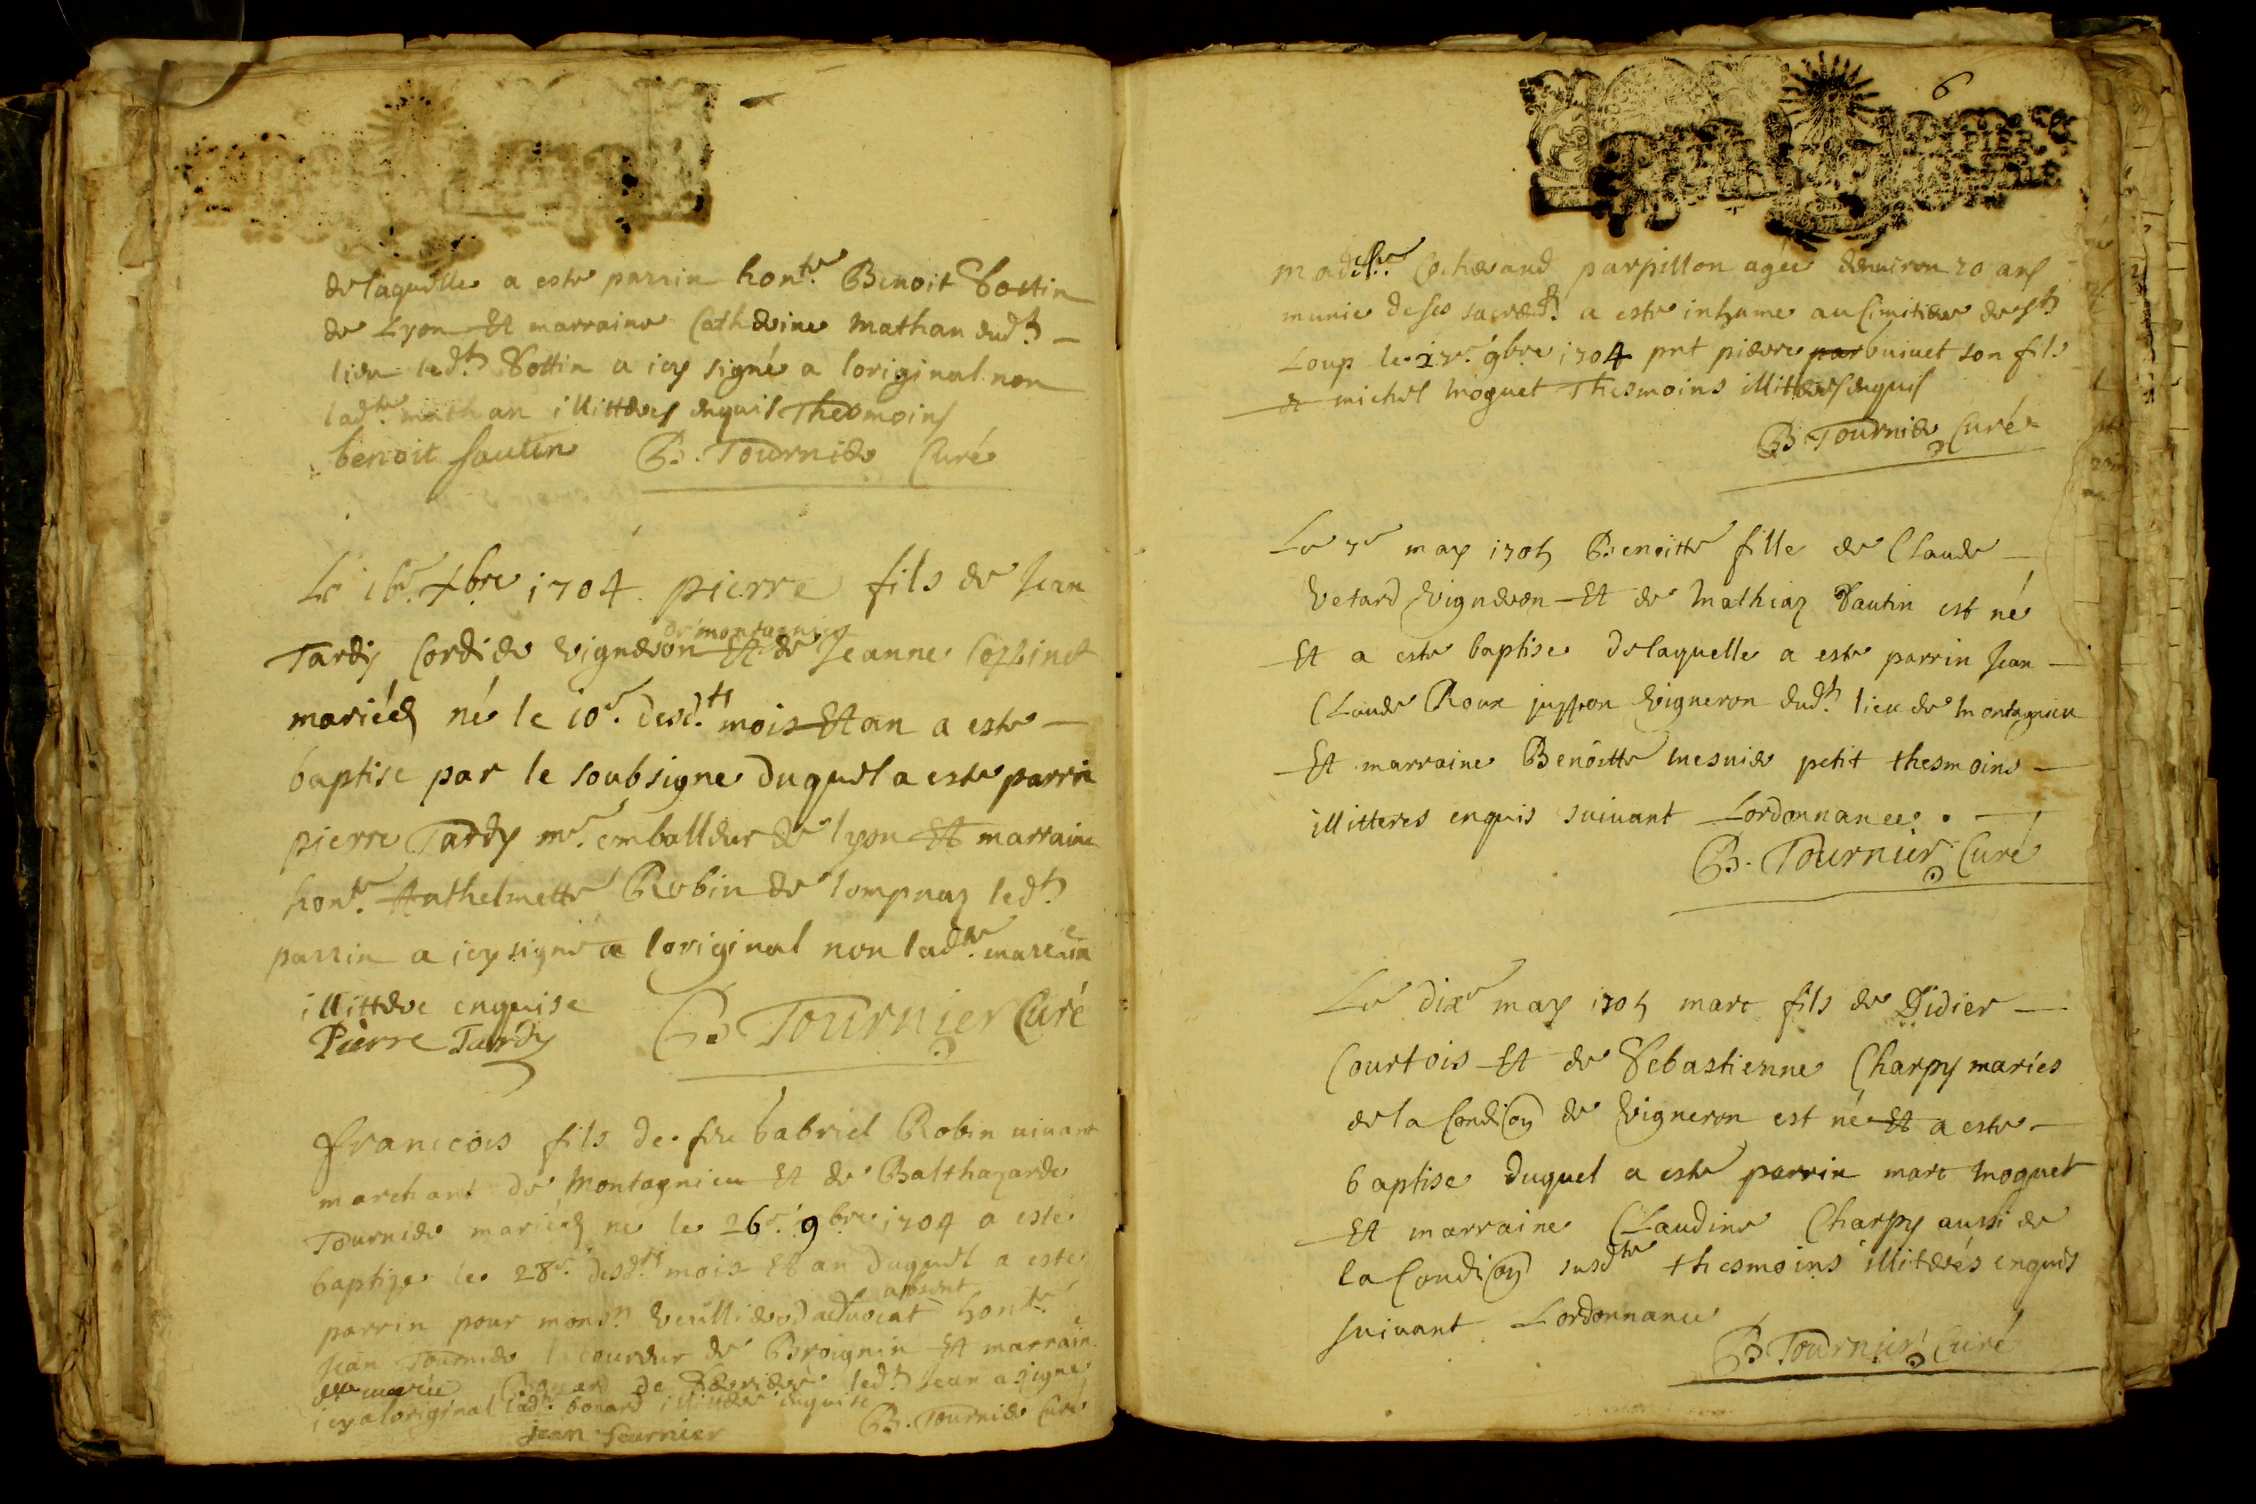 delaquelle a este parrin hon.te Benoit Sottin
de Lyon Et marraine Catherine Mathan dud.t
lieu led.t Sottin a icy signé a loriginal non
lad.te mathan illitteres enquis Thesmoins
benoit sautin B. Tournier Curé
Le 16.e xbre 1704 pierre fils de Jean
de montagnieu
Tardy Cordier vigneron Et de Jeanne
mariés né le 10.e desd.ts mois Et an a este
baptise par le soubsigne duquel a este parrin
pierre Tardy m.re emballeur de lyon Et marraine
hon.te Anthelmette Robin de lompnaz led.t
parrin a icy signé a loriginal non lad.te marraine
illittere enquise
Pierre Tardy B. Tournier Curé
francois fils de feu Gabriel Robin vivant
marchant de Montagnieu Et de Balthazarde
Tournier mariés né le 26.e 9bre 1704 a este
baptize le 28.e desd.ts mois Et an duquel a este
absent
parrin pour mons.r advocat hon.te
Jean Tournier de Broignin Et marraine
de led.t Jean a signé
icy a loriginal lad.te bonard illittere enquise
jean Tournier B. Tournier Curé
6
parpillon agée denuiron 70 ans
munie deses sacred.ts a este inhume au Cimitiere de St
Loup le 17.e 9bre 1704 pnt pierre buiuet son fils
et michel Moguet Thesmoins illitteres enquis
B. Tournier Curé
Le 7.e may 1705 Benoitte fille de Claude
Vetard Vigneron Et de Mathiaz Sautin est né
Et a este baptise delaquelle a este parrin Jean
Claude Roux juppon Vigneron dud.t lieu de Montagnieu
Et marraine Benoitte Mesnier petit thesmoins
illitteres enquis suivant Lordonnance.
B. Tournier Curé
Le dix.e may 1705 marc fils de Didier
Courtois Et de Sebastienne Charpy maries
de la Condi(on) de Vigneron est né Et a este
baptise duquel a este parrin marc Moguet
Et marraine Claudine Charpy aussi de
la Condi(on) susd.te thesmoins illiterés enquis
suivant Lordonnance
B. Tournier Curé